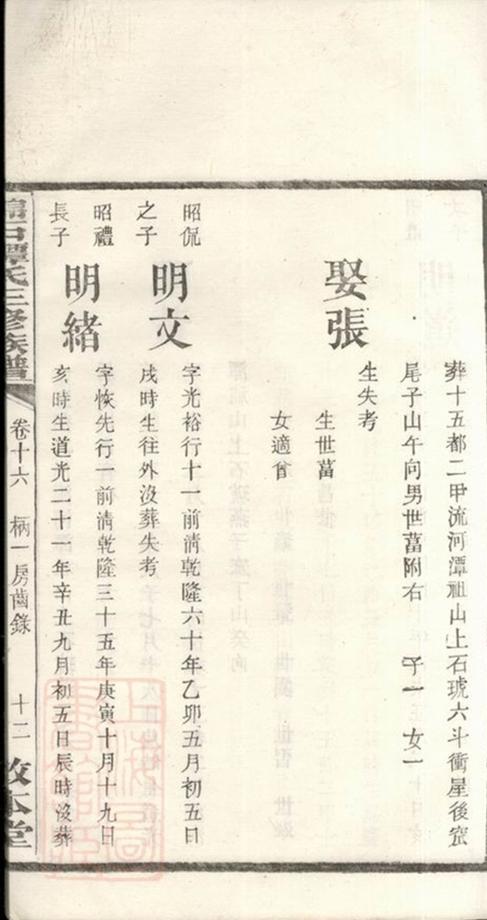 葬十五都二甲流河潭祖山上石琥六斗衝星後窊
尾子山午向男世葍附右 子一 女一
娶張
生失考
生世葍
女適昝
昭侃
之子
明文
字光裕行十一前清乾隆六十年乙卯五月初五日
戌時生往外沒葬失考
昭禮
長子
明緒
字恢先行一前清乾隆三十五年庚寅十月十九日
亥時生道光二十一年辛丑九月初五日辰時沒葬
譚氏三修族譜
卷十六
柄一房齒錄
十二
敦本堂